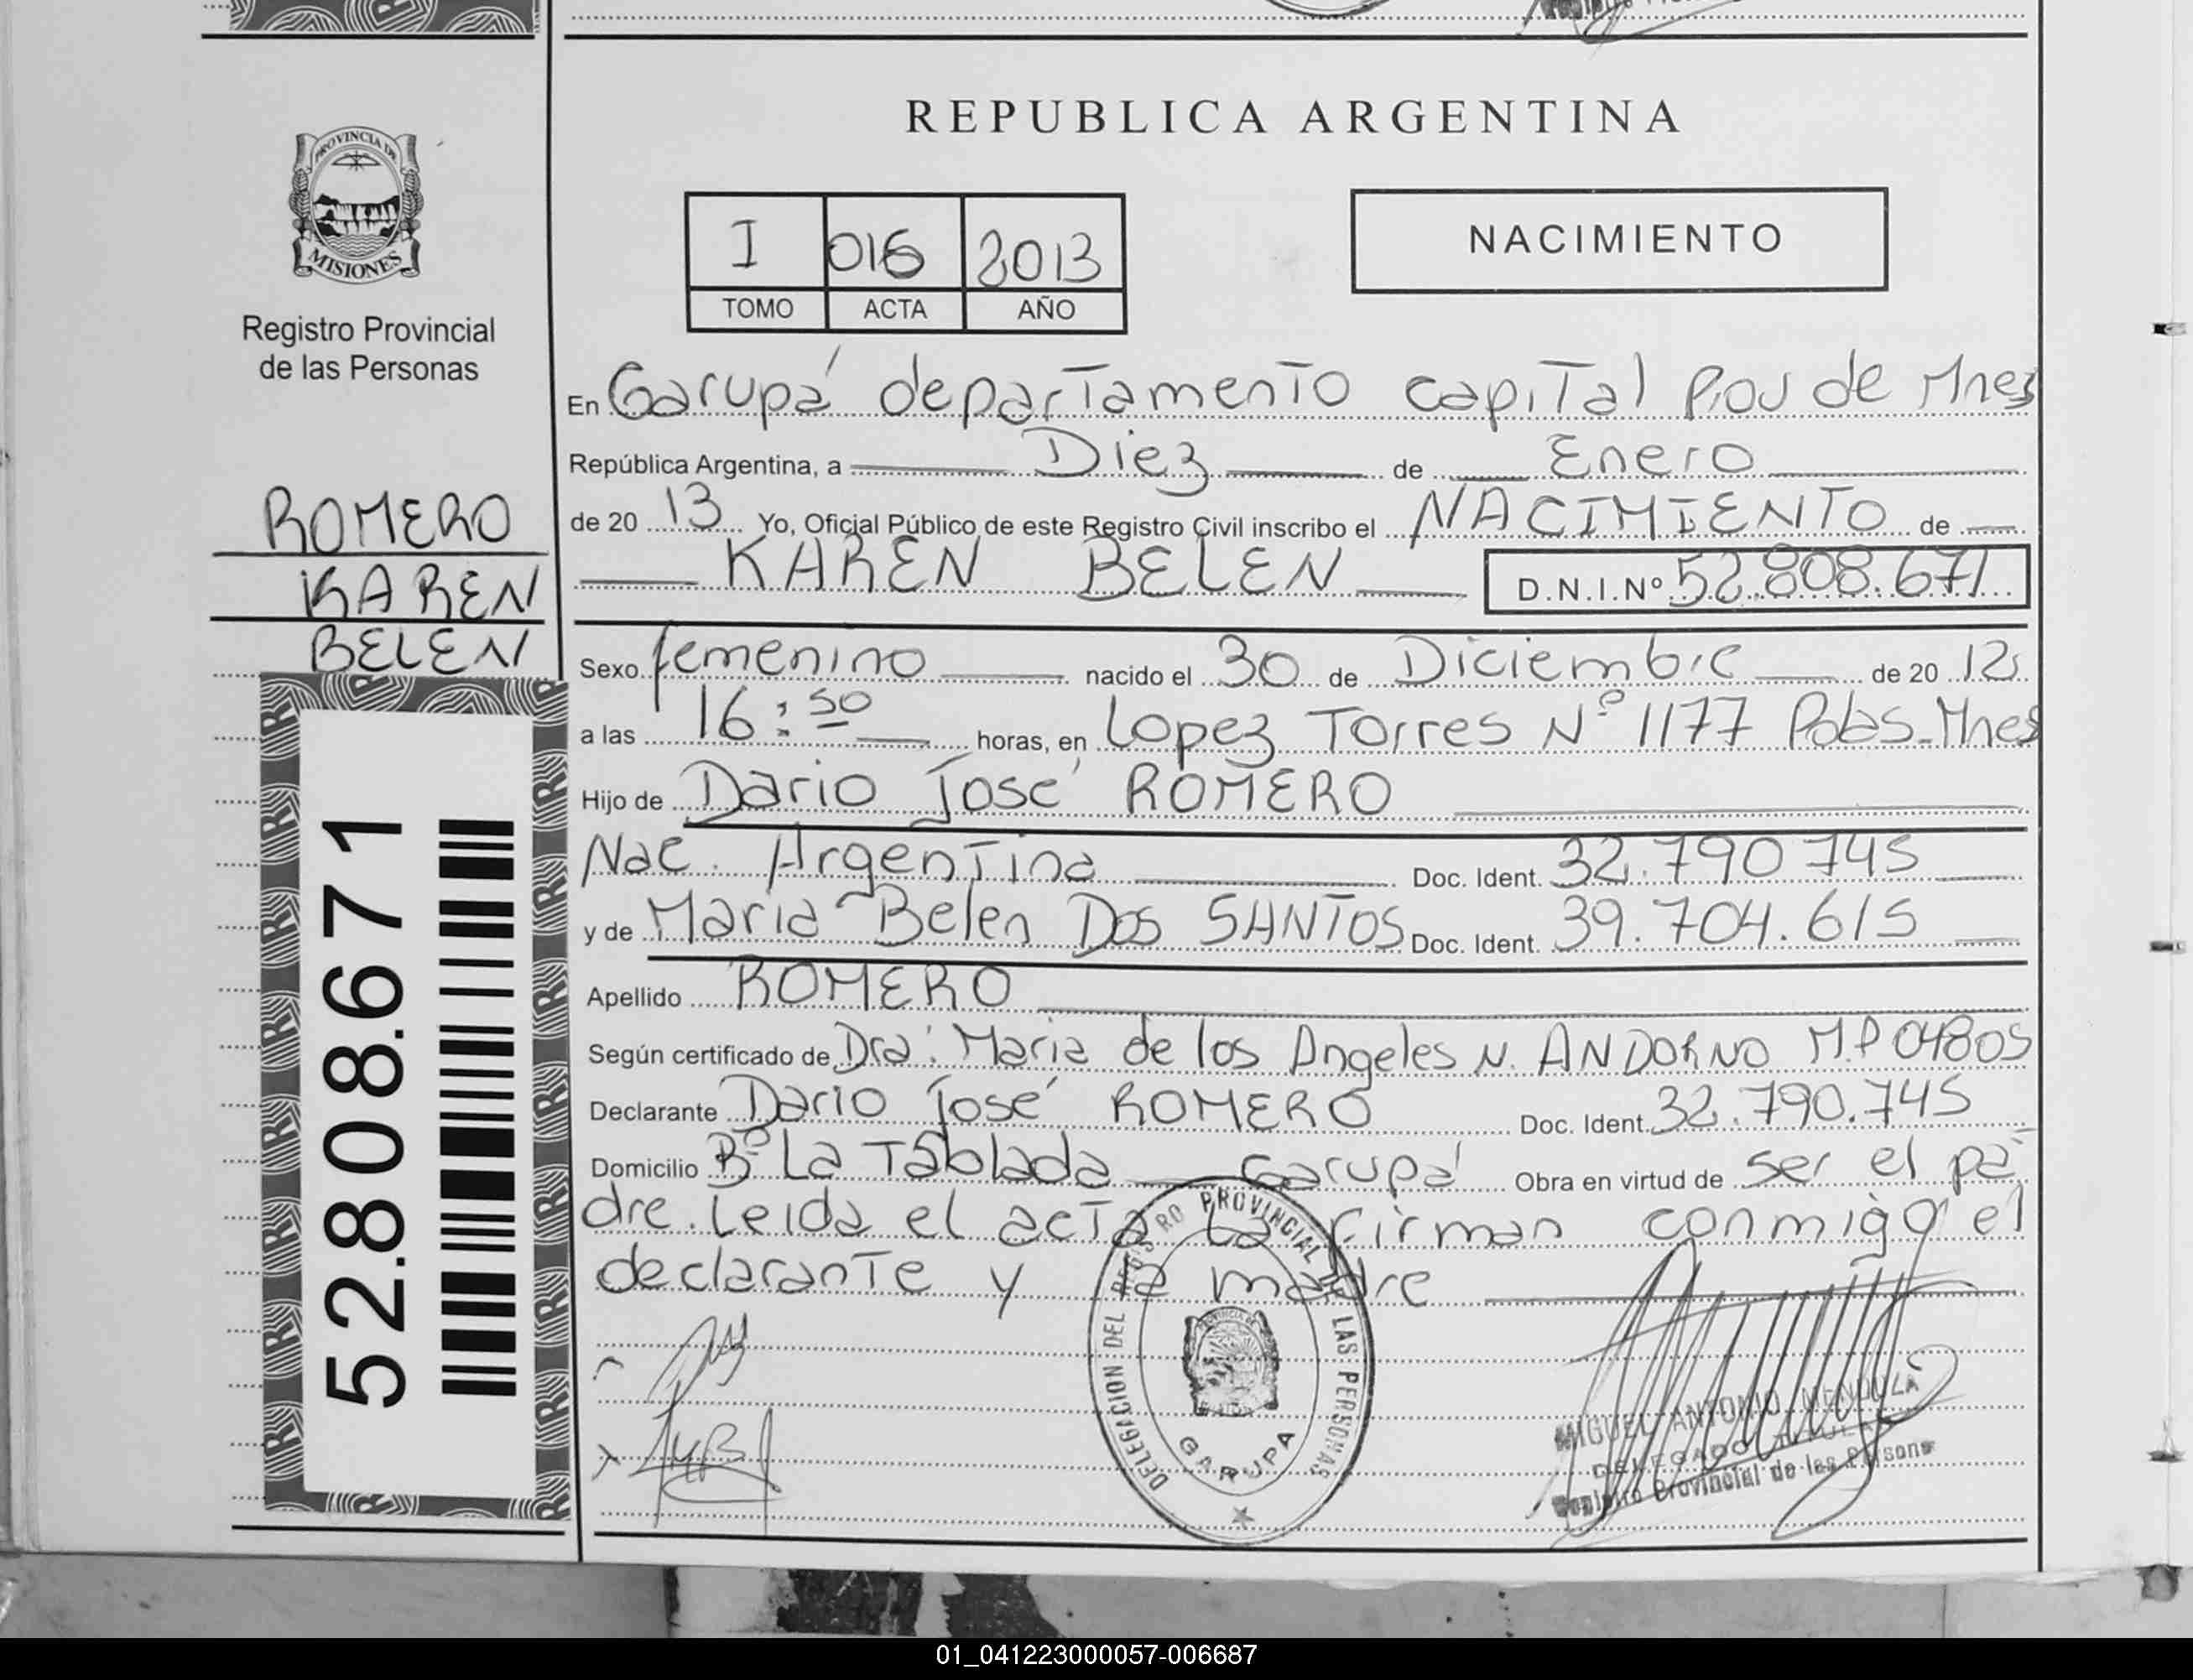 REPUBLICA ARGENTINA
PROVINCIA DE
MISIONES
Registro Provincial
de las Personas
I 016 2013
TOMO ACTA AÑO
NACIMIENTO
En Garupá departamento capital Prov de Mnes
República Argentina, a Diez de Enero
de 20 13 Yo, Oficial Público de este Registro Civil inscribo el NACIMIENTO de
KAREN BELEN D.N.I.Nº 52.808.671
ROMERO
KAREN
BELEN
52.808.671
Sexo femenino nacido el 30 de Diciembre de 20 12
a las 16:50 horas, en Lopez Torres Nº 1177 Pdas-Mnes
Hijo de Dario José ROMERO
Nac. Argentina Doc. Ident. 32.790 745
y de Maria Belen Dos SANTOS Doc. Ident. 39.704.615
Apellido ROMERO
Según certificado de Dra: Maria de los Angeles N. ANDORNO M.P 04805
Declarante Dario José ROMERO Doc. Ident. 32.790.745
Domicilio Bº La Tablada Garupá Obra en virtud de ser el pa
dre. Leida el acta la firman conmigo el
declarante y la madre
DELEGACION DEL REGISTRO PROVINCIAL DE LAS PERSONAS
GARUPA
MIGUEL ANTONIO MENDOZA
DELEGADO TITULAR
Registro Provincial de las Persona
01_041223000057-006687